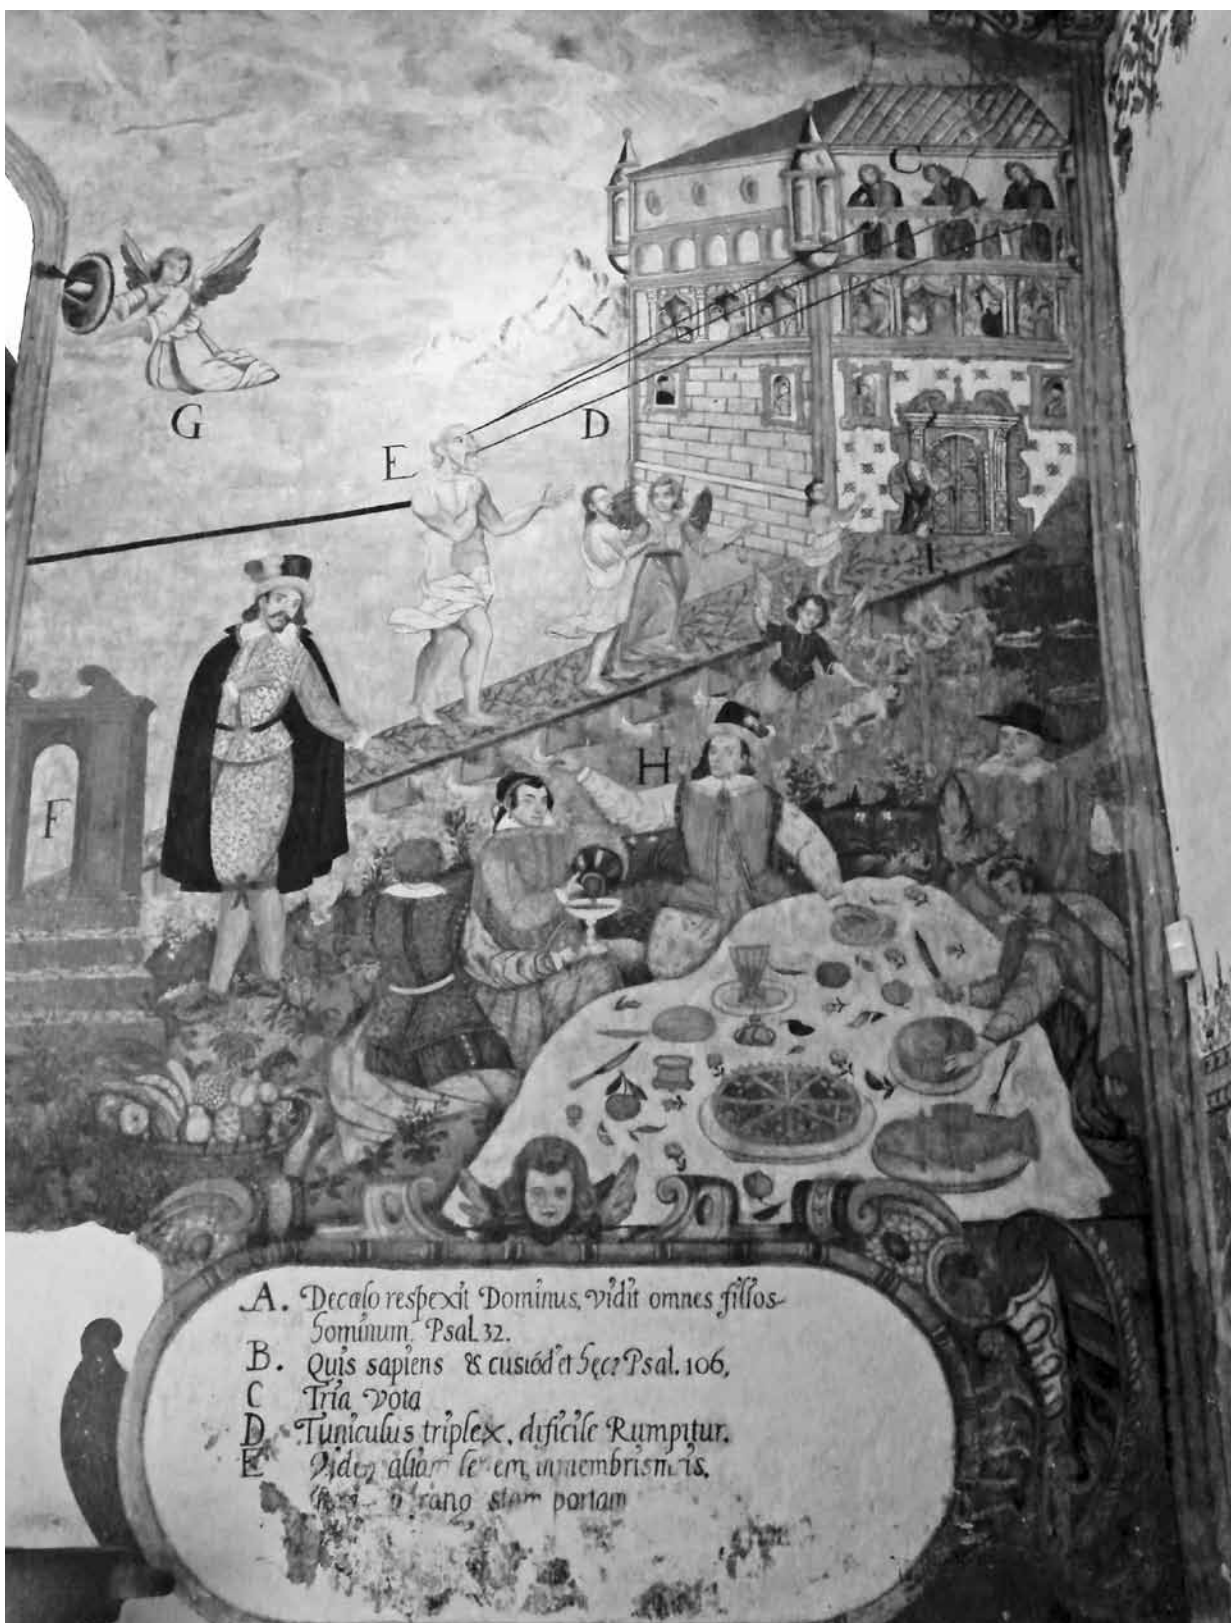 C
B
G
E
D
I
H
F
A. Decælo respexit Dominus, vidit omnes filios
hominum. Psal. 32.
B. Quis sapiens & custódiet hęc? Psal. 106,
C Tria vota
D Funiculus triplex, dificile Rumpitur.
E aliam in membris
portam